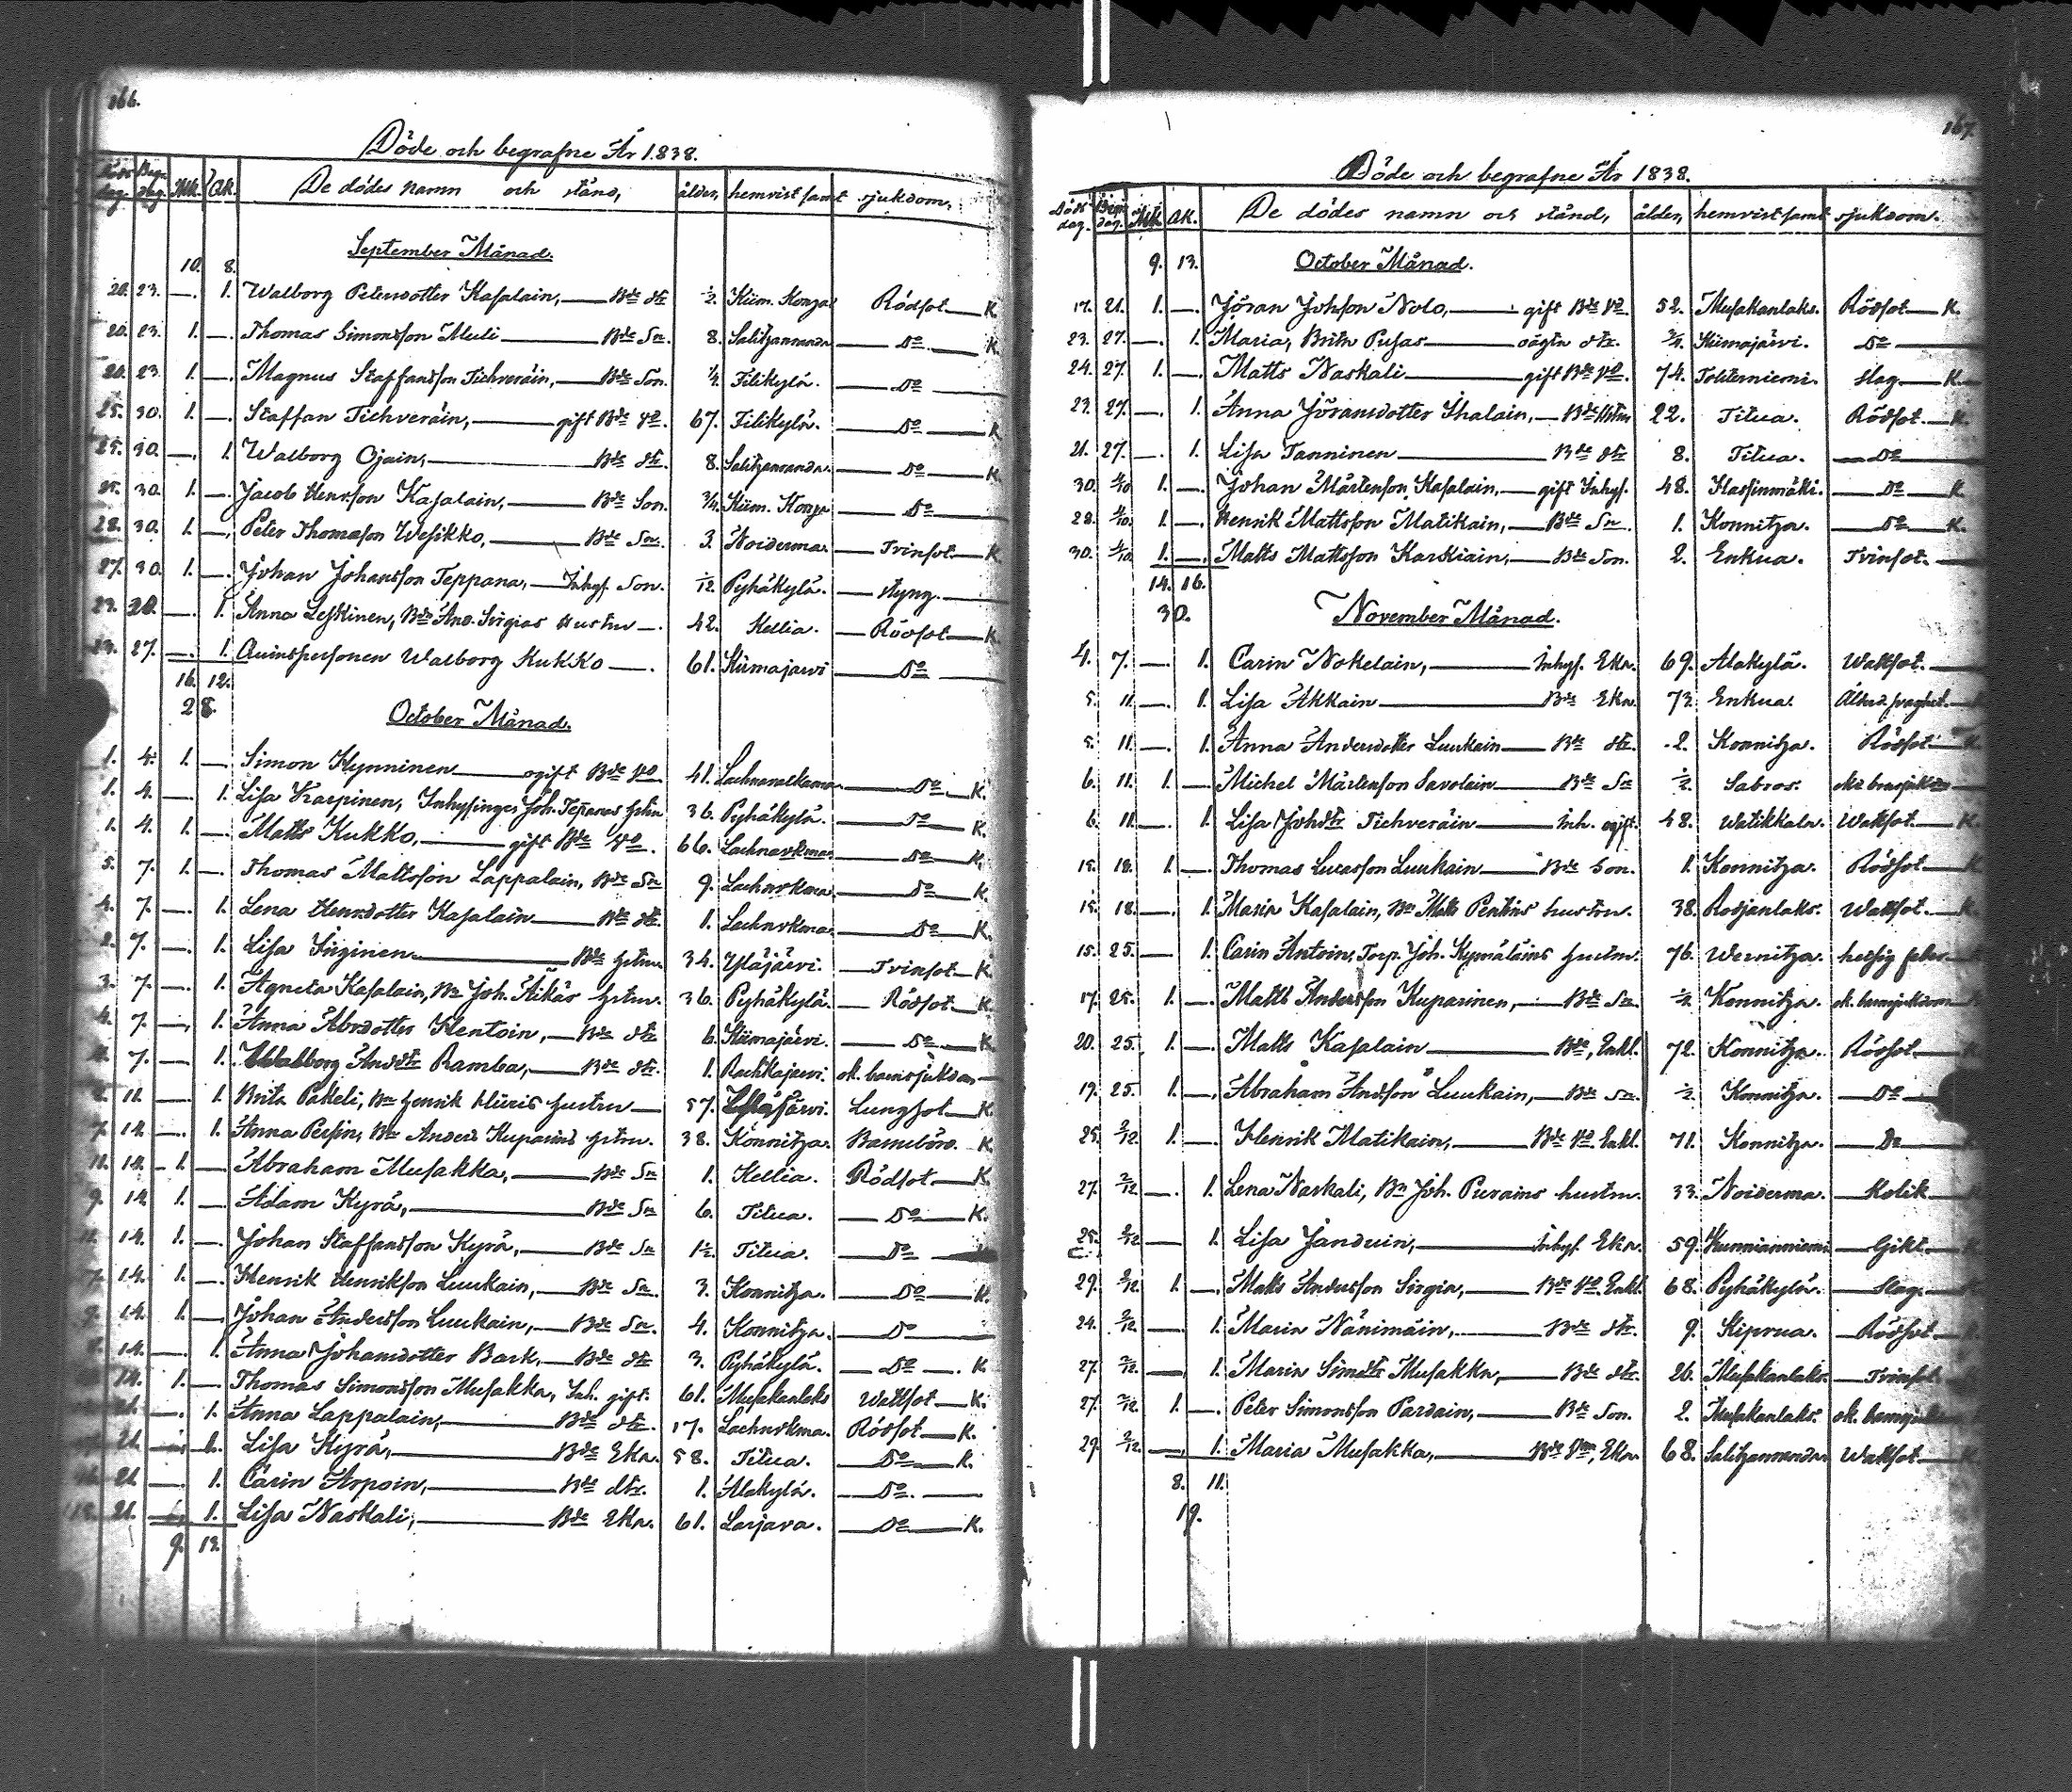 166.
Döde och begrafne År 1838.
Döds dag. Begr. dag. Mk. Qk. De dödes namn och stånd, ålder, hemvist samt sjukdom.
September Månad.
10. 8.
20. 23. —. 1. Walborg Petersdotter Kasalain, — Bde dtr. ½. Kiim. Konga Rödsot — K
20. 23. 1. —. Thomas Simonsson Muli — Bde Sn. 8. Salitzanranda — Do — K.
20. 23. 1. —. Magnus Staffansson Tichveräin, — Bde Son. ¼. Filikylä. — Do —
25. 30. 1. —. Staffan Tichveräin, — gift Bde 67. Filikylä. — Do — K
25. 30. —. 1. Walborg Ojain, — Bde dtr. 8. Salitzanranda. — Do — K.
25. 30. 1. —. Jacob Henrsson Kasalain, — Bde Son. ¾. Kiim. Konga — Do —
28. 30. 1. —. Peter Thomasson Wesikko, — Bde Sn. 3. Noiderma. — Tvinsot — K
27. 30. 1. —. Johan Johansson Teppana, — Inhys. Son. 1/12 Pyhäkylä. — styng. —
23. 28. —. 1. Anna Leskinen, Bde And. Sirgias hustru —. 42. Kellia. — Rödsot — K.
23. 27. —. 1. Qvinspersonen Walborg Kukko —. 61. Kiimajarvi — Do —
16. 12.
28.
October Månad.
1. 4. 1. —. Simon Hynninen — ogift Bde 41. — Do —. K.
1. 4. —. 1. Lisa Karpinen, Inhysinges Joh. Tepanas hstru 36. Pyhäkylä. — Do — K.
1. 4. 1. —. Matts Kukko, — gift Bde 66. Lachnavkma. — Do — K.
5. 7. 1. —. Thomas Mattsson Lappalain, Bde Sn 9. Lachnvkma. — Do — K.
4. 7. —. 1. Lena Henrsdotter Kasalain — Bde dtr. 1. Lachnvkma. — Do — K.
2. 7. —. 1. Lisa Sirginen — Bde hstru. 34. Yläjärvi. — Tvinsot — K.
3. 7. —. 1. Agneta Kasalain, Bn Joh. Äikäs hstru. 36. Pyhäkylä. — Rödsot — K.
4. 7. —. 1. Anna Abrsdotter Kentoin, — Bde dtr 6. Kiimajärvi. — Do — K.
7. —. 1. Walborg Andsdtr Ramba, — Bde dtr. 1. Rachkajarvi. ok. barnsjukdom —
11. —. 1. Brita Pakeli, Bn Henrik Hiiris hustru — 57. Lungsot — K.
7. 14. —. 1. Anna Persin, Bn Anders Kuparins hstru. 38. Konnitza. Barnsbörd. K.
11. 14. 1. — Abraham Musakka, — Bde Sn 1. Kellia. Rödsot — K
9. 14. 1. —. Adam Kyrä, — Bde Sn 6. Titua. — Do — K.
14. 1. —. Johan Staffansson Kyrä, — Bde Sn 1½. Titua. — Do —
7. 14. 1. —. Henrik Henriksson Luukain, — Bde Sn. 3. Konnitza. — Do — K.
9. 14. 1. — Johan Andersson Luukain, — Bde Sn. 4. Konnitza. — Do —
14. —. 1. Anna Johansdotter Bark, — Bde dtr 3. Pyhäkylä. — Do —. K
14. 1. —. Thomas Simonsson Musakka, Inh. gift. 61. Musakanlaks Wattsot — K.
21. —. 1. Anna Lappalain, — Bde dtr. 17. Lachnvkma. Rödsot — K.
21. —. 1. Lisa Kyrä, — Bde Eka. 58. Titua. — Do — K.
21. —. 1. Carin Arpoin, — Bde dtr. 1. Alakylä. — Do. —
21. —. 1. Lisa Naskali, — Bde Eka. 61. Larjava. — Do — K.
9. 13.
167.
Döde och begrafne År 1838.
Döds dag. Begr. dag. Mk. Qk. De dödes namn och stånd, ålder, hemvist samt sjukdom.
9. 13. October Månad.
17. 21. 1. —. Jöran Johsson Nolo, — gift Bde 52. Musakanlaks. Rödsot — K.
23. 27. —. 1. Maria, Brita Pusas — oägta dtr. ¾. Kiimajärvi. — Do —
24. 27. 1. —. Matts Naskali — gift Bde 74. Slag — K.
23. 27. —. 1. Anna Jöransdotter Ihalain, — Bde Hstru 22. Titua. Rödsot. — K.
21. 27. —. 1. Lisa Tanninen — Bde dtr 8. Titua. — Do —
30. 4/10 1. —. Johan Mårtensson Kasalain, — gift Inhys. 48. Hassinmäki. — Do — K
28. 4/10. 1. —. Henrik Mattsson Matikain, — Bde Sn. 1. Konnitza. — Do — K.
30. 4/10. 1. —. Matts Mattsson Karskiain, — Bde Son. 2. Enkua. Tvinsot. —
14. 16.
30. November Månad.
4. 7. —. 1. Carin Nokelain, — Inhys. Eka. 69. Alakylä. Wattsot. —
5. 11. —. 1. Lisa Akkain — Bde Eka. 73. Enkua.
5. 11. —. 1. Anna Andersdotter Luukain — Bde dtr. 2. Konnitza. Rödsot
6. 11. 1. —. Michel Mårtensson Savolain — Bde Sn ½. Sabros. ok. barnsjukdom
6. 11. —. 1. Lisa Johsdtr Tichveräin — Inh. ogift. 48. Watikkala. Wattsot. — K.
15. 18. 1. —. Thomas Lucasson Luukain — Bde Son. 1. Konnitza. Rödsot —
15. 18. —. 1. Maria Kasalain, Bn Matts Pentins hustru. 38. Rosjanlaks. Wattsot. —
15. 25. —. 1. Carin Antoin, Torp. Joh. Kymäläins hustru. 76. Wernitza. hetsig feber —
17. 25. 1. —. Matts Andersson Kuparinen, — Bde Sn. Konnitza. ok. barnsjukdom
20. 25. 1. —. Matts Kasalain — Bde, Enkl. 72. Konnitza. Rödsot —
19. 25 1. —. Abraham Andsson Luukain, — Bde Sn. ½. Konnitza. — Do —
25. 2/12 1. —. Henrik Matikain, — Bde Enkl. 71. Konnitza. — Do
27. 2/12. —. 1. Lena Naskali, Bn Joh. Pierains hustru. 33. Noiderma. — Kolik —
25. 2/12 —. 1. Lisa Janduin, — Inhys. Eka. 59. Hunnianniemi — Gikt —
29. 2/12. 1. —. Matts Andersson Sirgia, — Bde Enkl. 68. Pyhäkylä. — Slag. —
24. 2/12. —. 1. Maria Nänimäin, — Bde dtr. 9. Kiprua. — Rödsot
27. 2/12. —. 1. Maria Simsdtr Musakka, — Bde dtr. 26. Musakanlaks. — Tvinsot
27. 2/12. 1. —. Peter Simonsson Pardain, — Bde Son. 2. Musakanlaks. ok. barnsjukdom
29. 2/12. —. 1. Maria Musakka, — Bde Eka. 68. Salitzanranda Wattsot —
8. 11.
19.